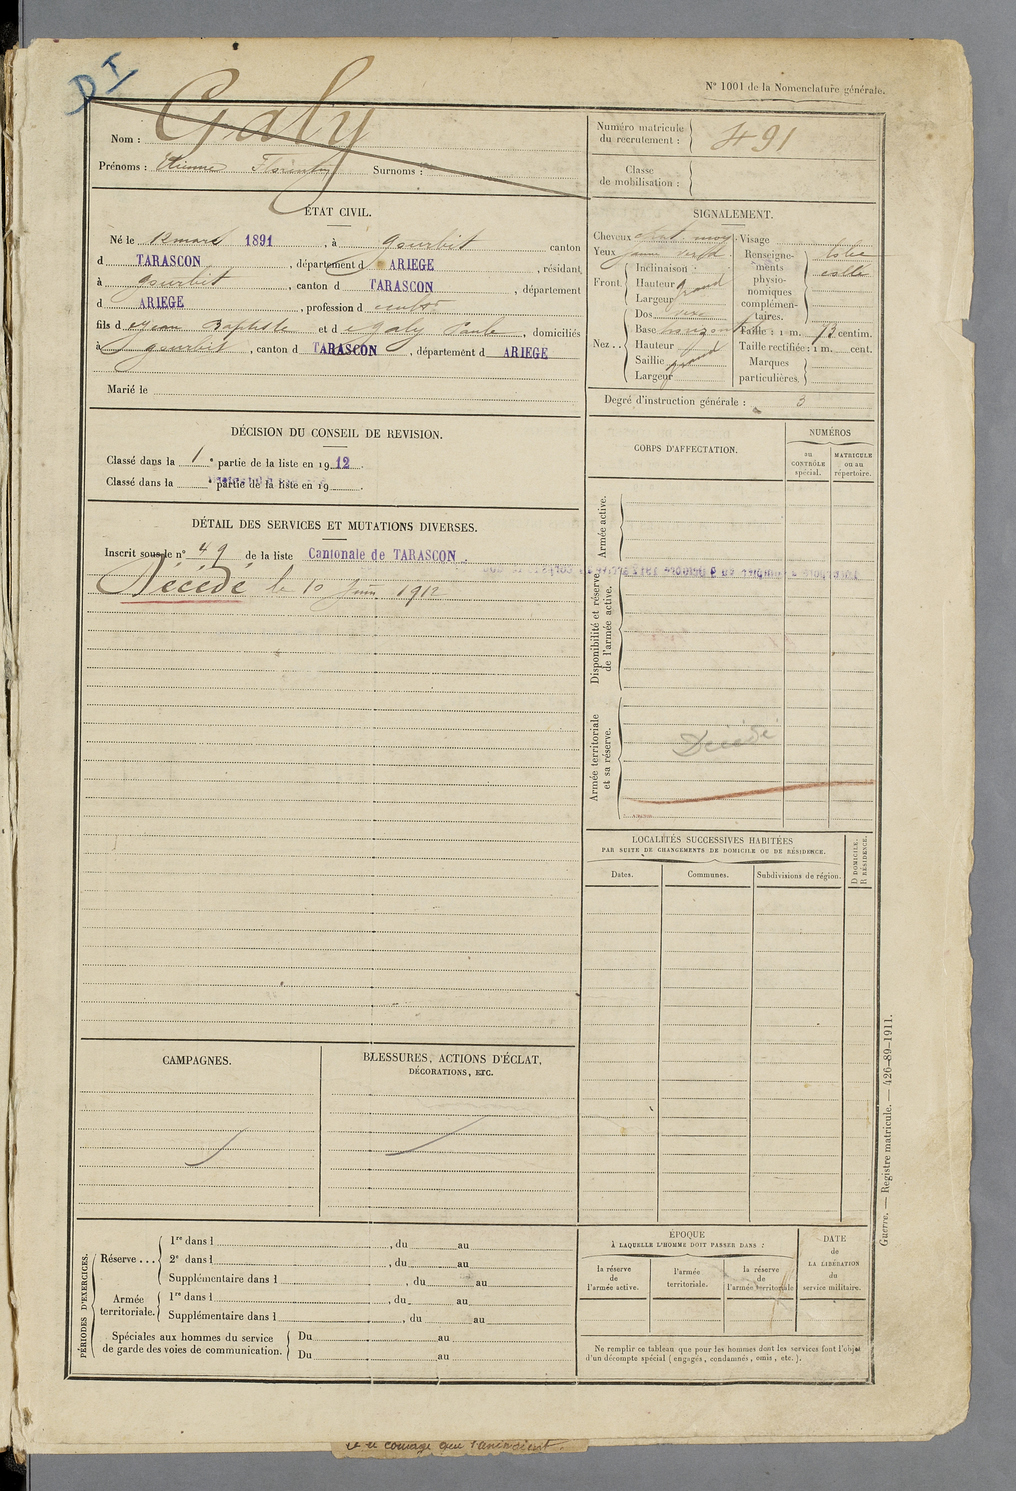 D I
N° 1001 de la Nomenclature générale.
Nom : Galy
Prénoms : Etienne Surnoms :
Numéro matricule du recrutement : 491
Classe de mobilisation :
ÉTAT CIVIL.
Né le 12 mars 1891, à Gourbit canton
d TARASCON, département d ARIEGE, résidant
à Gourbit, canton d TARASCON, département
d ARIEGE, profession d
fils d Jean Baptiste et d Galy Paule, domiciliés
à Gourbit, canton d TARASCON, département d ARIEGE
Marié le
SIGNALEMENT.
Cheveux Visage
Yeux jaune verd.
Front. Inclinaison
Hauteur grand
Largeur
Nez .. Dos
Base horizont
Hauteur
Saillie grand
Largeur
Renseignements physionomiques complémentaires.
Taille : 1 m. 73 centim.
Taille rectifiée : 1 m. cent.
Marques particulières.
Degré d'instruction générale : 3
DÉCISION DU CONSEIL DE REVISION.
Classé dans la 1e partie de la liste en 1912.
Classé dans la e partie de la liste en 19 .
DÉTAIL DES SERVICES ET MUTATIONS DIVERSES.
Inscrit sous le n° 49 de la liste Cantonale de TARASCON.
Décédé le 10 Juin 1912
CORPS D'AFFECTATION.
NUMÉROS
au CONTRÔLE spécial.
MATRICULE ou au répertoire.
Armée active.
Disponibilité et réserve de l'armée active.
Armée territoriale et sa réserve.
Décédé
LOCALITÉS SUCCESSIVES HABITÉES
PAR SUITE DE CHANGEMENTS DE DOMICILE OU DE RÉSIDENCE.
Dates. Communes. Subdivisions de région.
D DOMICILE. R RÉSIDENCE.
CAMPAGNES.
BLESSURES, ACTIONS D'ÉCLAT,
DÉCORATIONS, ETC.
PÉRIODES D'EXERCICES.
Réserve ... 1re dans l , du au
2e dans l , du au
Supplémentaire dans l , du au
Armée territoriale. 1re dans l , du au
Supplémentaire dans l , du au
Spéciales aux hommes du service de garde des voies de communication. Du au
Du au
ÉPOQUE
À LAQUELLE L'HOMME DOIT PASSER DANS :
la réserve de l'armée active.
l'armée territoriale.
la réserve de l'armée territoriale
DATE de LA LIBÉRATION du service militaire.
Ne remplir ce tableau que pour les hommes dont les services font l'objet
d'un décompte spécial (engagés, condamnés, omis, etc.).
Guerre. — Registre matricule. — 426-89-1911.
courage que